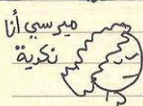 ميرسي أنا
نكدية